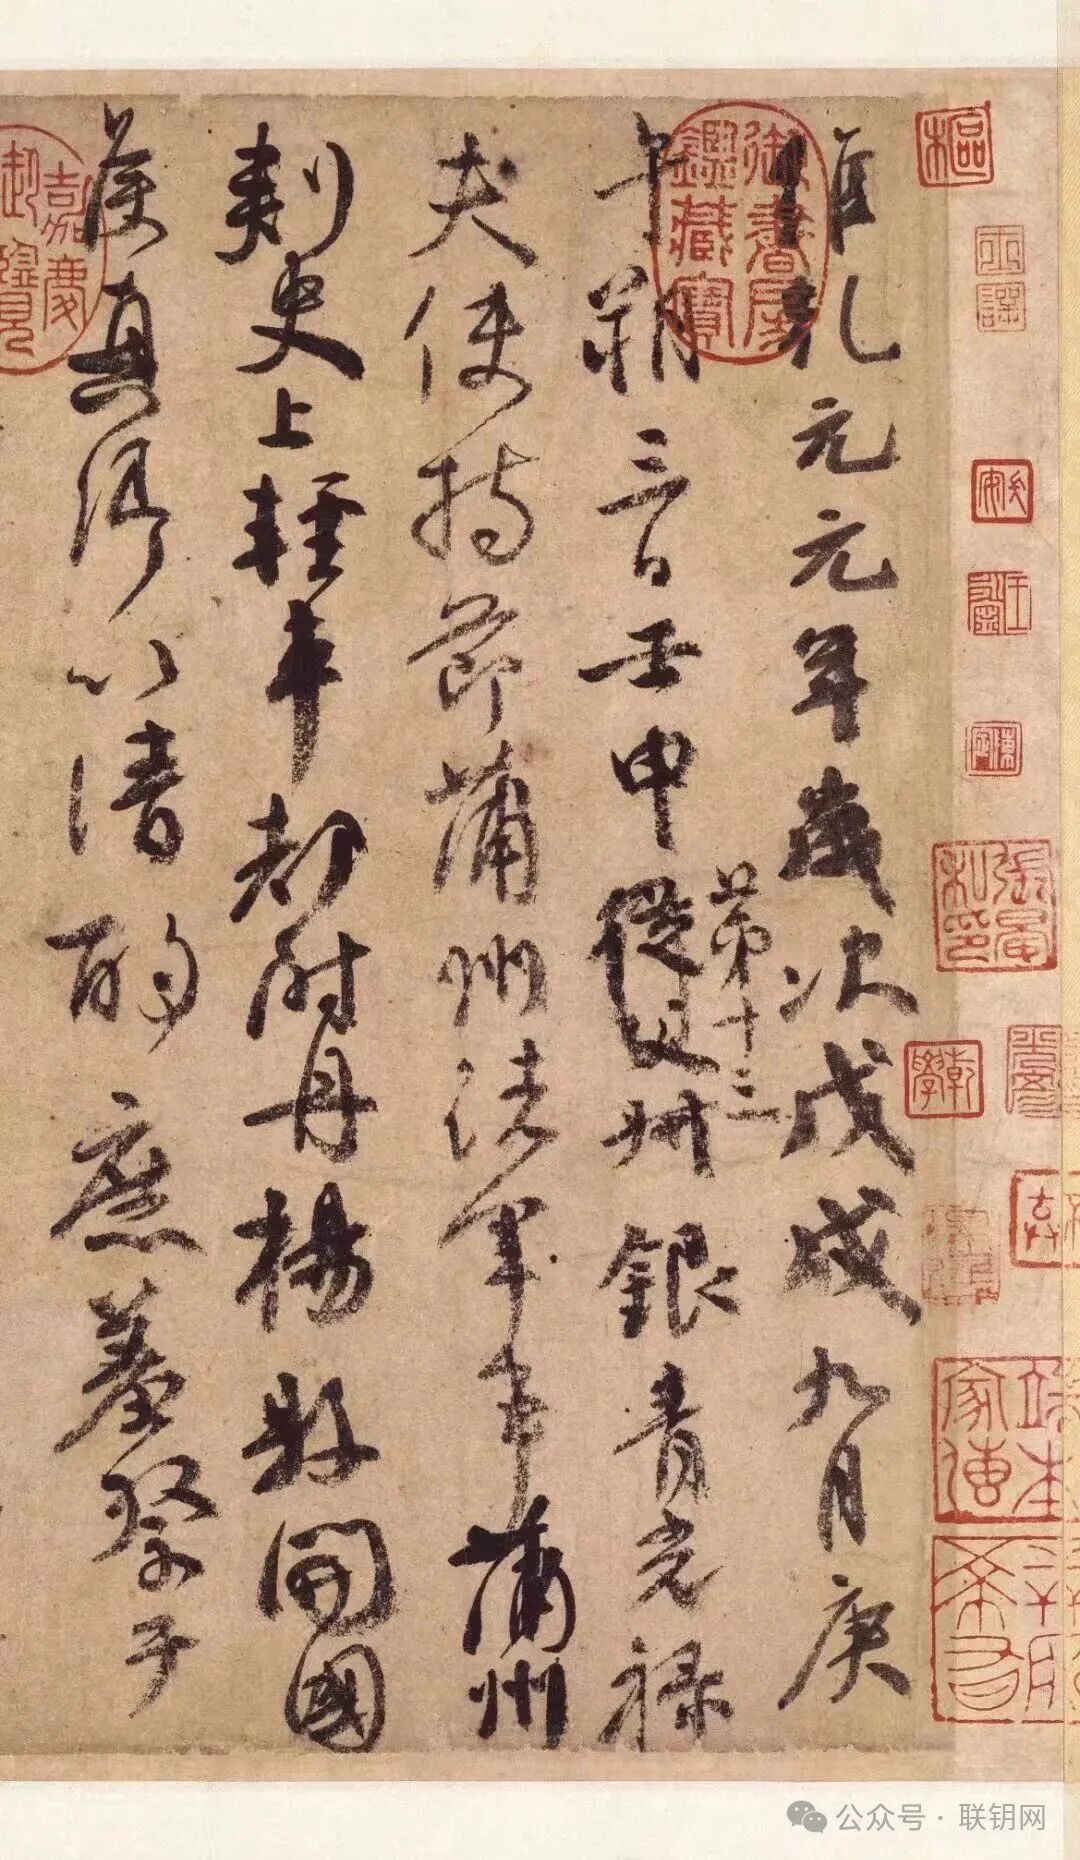 維乾元元年歲次戊戌九月庚
午朔三日壬申第十三從父卅銀青光祿
夫使持節蒲州諸軍事蒲州
刺史上輕車都尉丹楊縣開國
侯真卿以清酌庶羞祭于
御書房鑑藏寶
嘉慶御覽
樞
公众号·联钥网